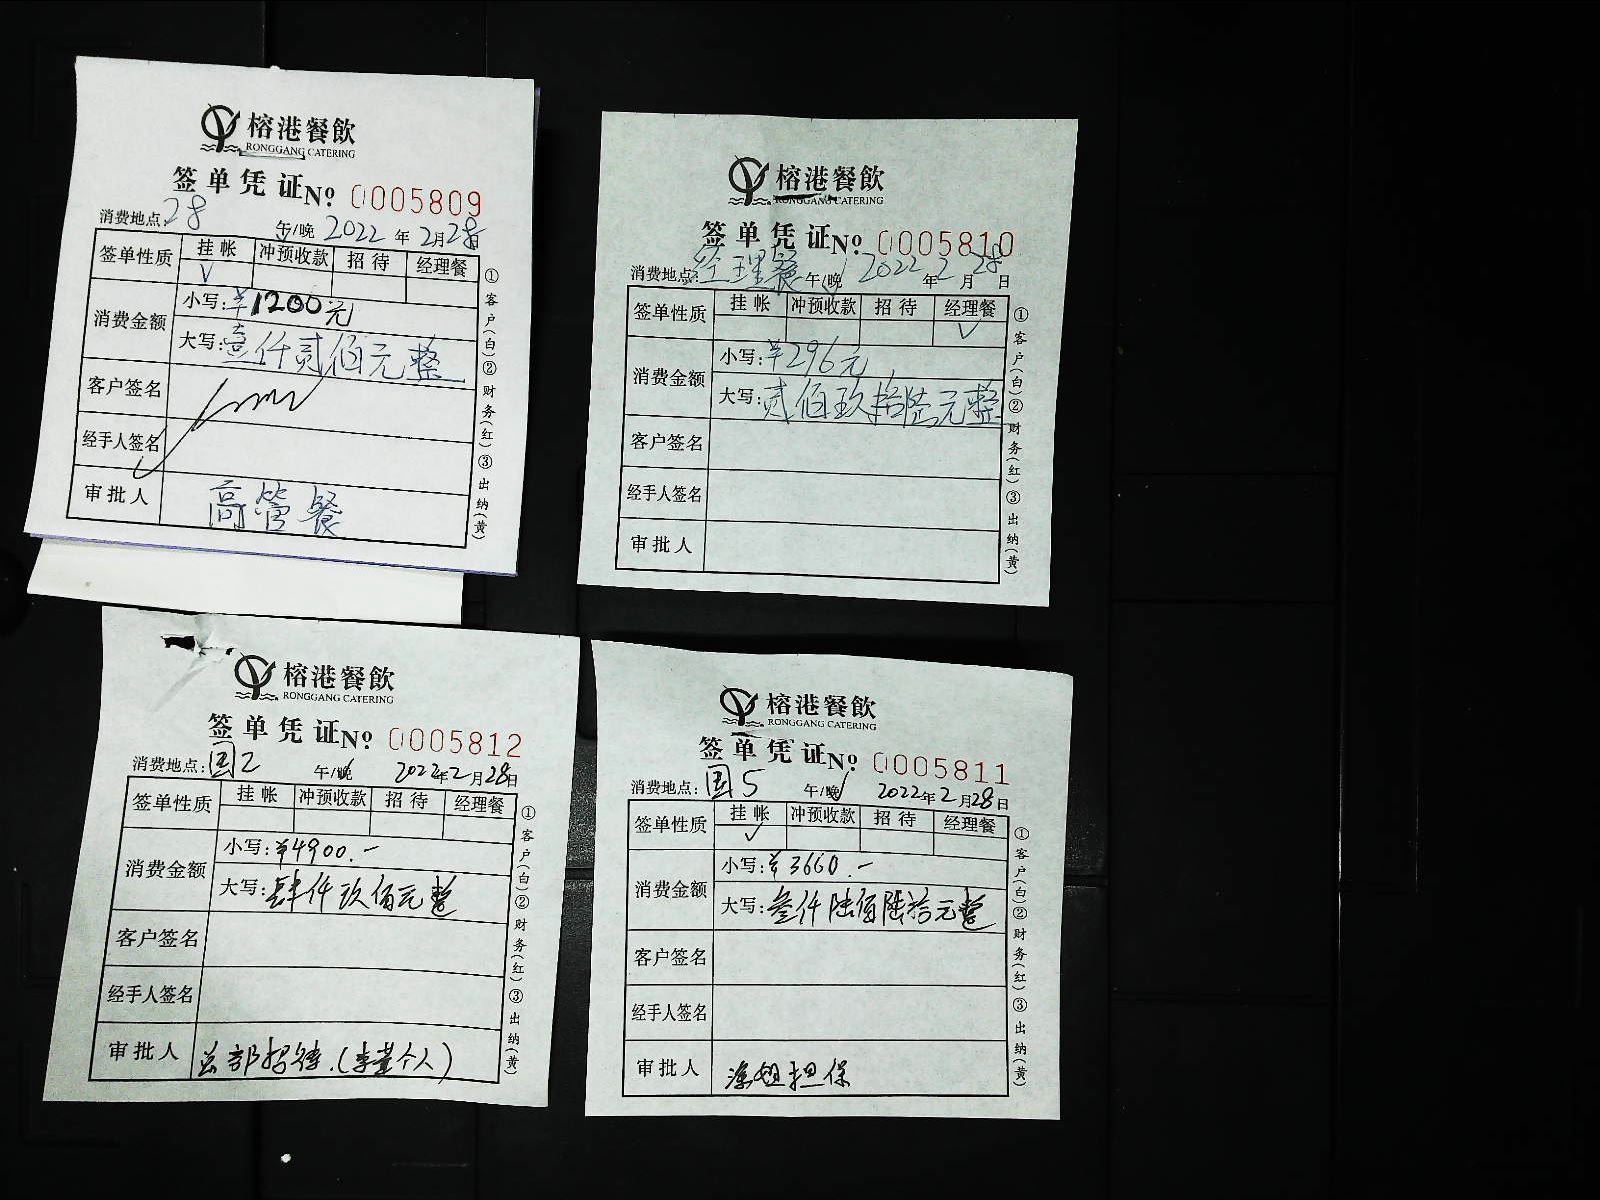 榕港餐飲
RONGGANG CATERING
签单凭证No 0005809
消费地点:28 午/晚 2022年2月28日
签单性质 挂帐 冲预收款 招待 经理餐
√
消费金额 小写:¥1200元
大写:壹仟贰佰元整
客户签名
经手人签名
审批人 高管餐
①客户(白)②财务(红)③出纳(黄)
榕港餐飲
RONGGANG CATERING
签单凭证No 0005810
消费地点:经理餐 午/晚√ 2022年2月28日
签单性质 挂帐 冲预收款 招待 经理餐
√
消费金额 小写:¥296元
大写:贰佰玖拾陆元整
客户签名
经手人签名
审批人
①客户(白)②财务(红)③出纳(黄)
榕港餐飲
RONGGANG CATERING
签单凭证No 0005812
消费地点:国2 午/晚 2022年2月28日
签单性质 挂帐 冲预收款 招待 经理餐
消费金额 小写:¥4900.-
大写:肆仟玖佰元整
客户签名
经手人签名
审批人 总部招待.(李董个人)
①客户(白)②财务(红)③出纳(黄)
榕港餐飲
RONGGANG CATERING
签单凭证No 0005811
消费地点:国5 午/晚√ 2022年2月28日
签单性质 挂帐 冲预收款 招待 经理餐
√
消费金额 小写:¥3660.-
大写:叁仟陆佰陆拾元整
客户签名
经手人签名
审批人 涂姐担保
①客户(白)②财务(红)③出纳(黄)